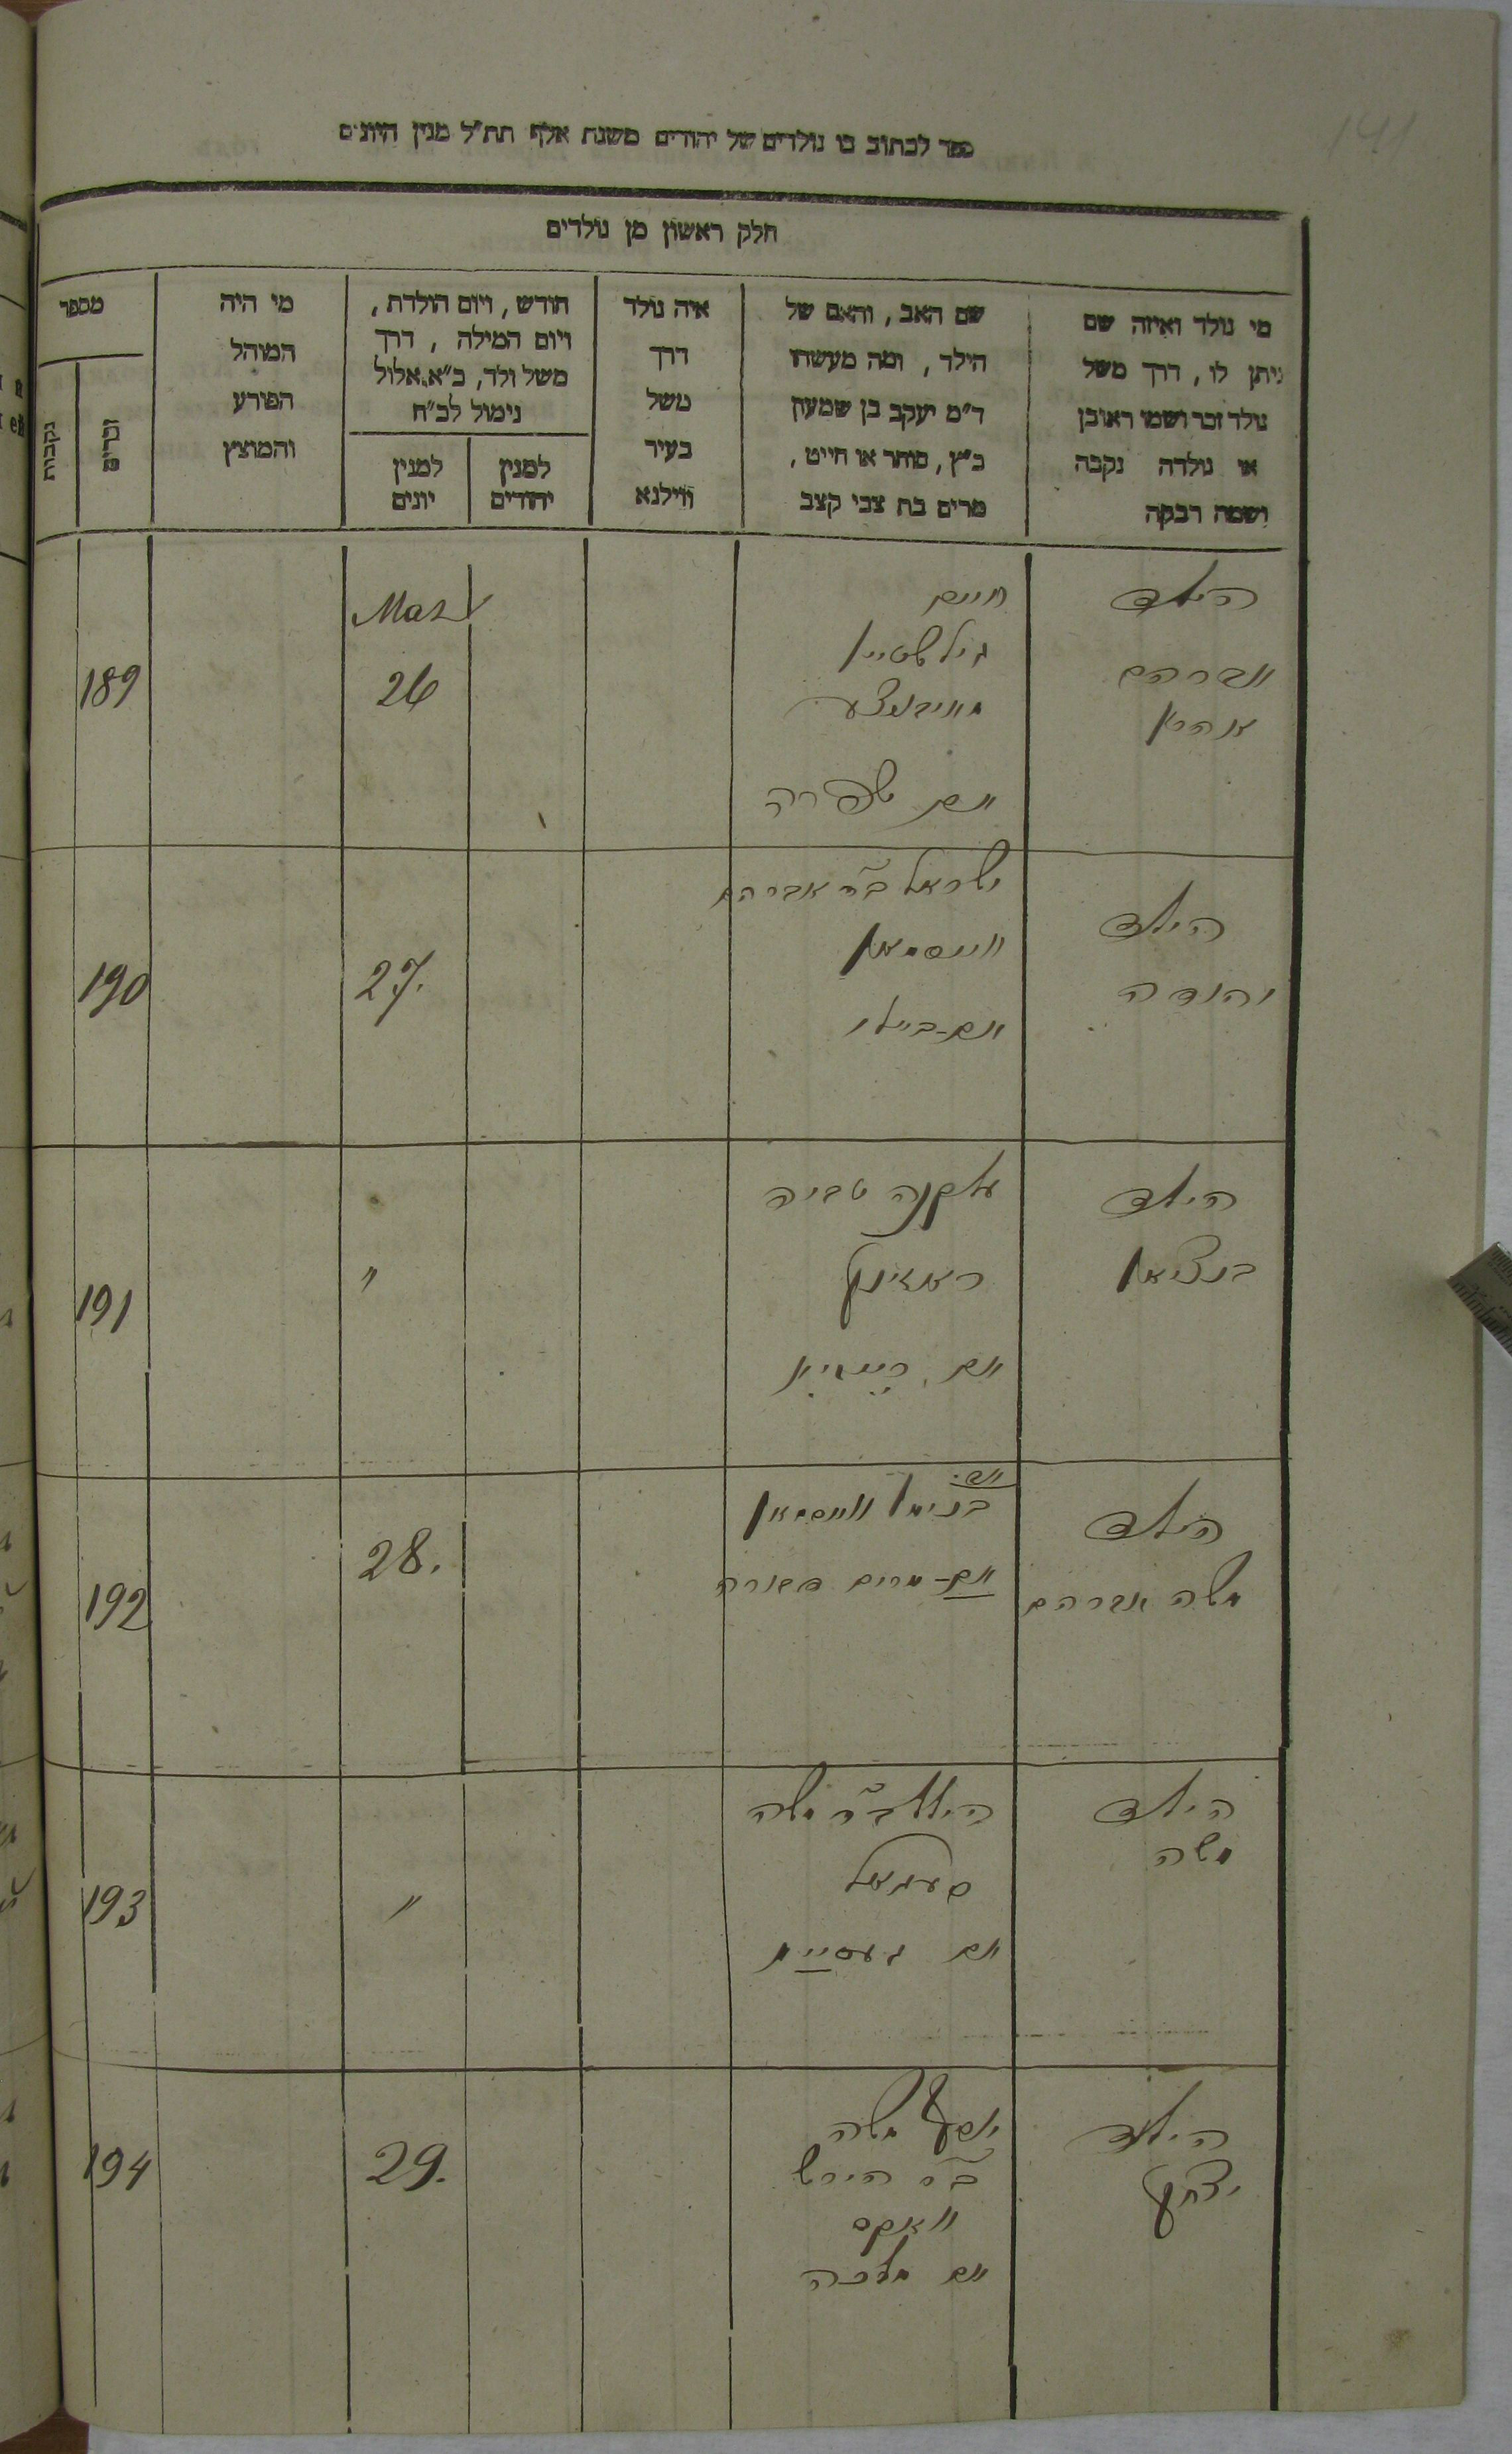 141
ספר לכתוב בו נולדים של יהודים משנת אלף תת"ל מנין היונים
חלק ראשון מן נולדים
מי נולד ואיזה שם
ניתן לו, דרך משל
נולד זכר ושמו ראובן
או נולדה נקבה
ושמה רבקה
שם האב, והאם של
הילד, ומה מעשהו
ד"מ יעקב בן שמעון
כ"ץ, סוחר או חייט,
מרים בת צבי קצב
איה נולד
דרך
משל
בעיר
ווילנא
חודש, ויום הולדת,
ויום המילה, דרך
משל ולד, כ"א אלול
נימול לכ"ח
למנין
יהודים
למנין
יונים
מי היה
המוהל
הפורע
והמוצץ
מספר
זכרים
נקבות
הילד
אברהם
אהרן
חיים
גילשטיין
ואם שפרה
26
189
הילד
יהודה
ישראל ב"ר אברהם
וויסמאן
ואם-ביילי
27.
190
הילד
בנציאן
אלקנה טביה
ואם
"
191
הילד
משה אברהם
בנימין וויסמאן
ואם-מרים דבורה
28.
192
הילד
משה
הילל ב"ר משה
ואם
"
193
הילד
יצחק
יוסף משה
ב"ר הירש
וואקס
ואם מלכה
29.
194